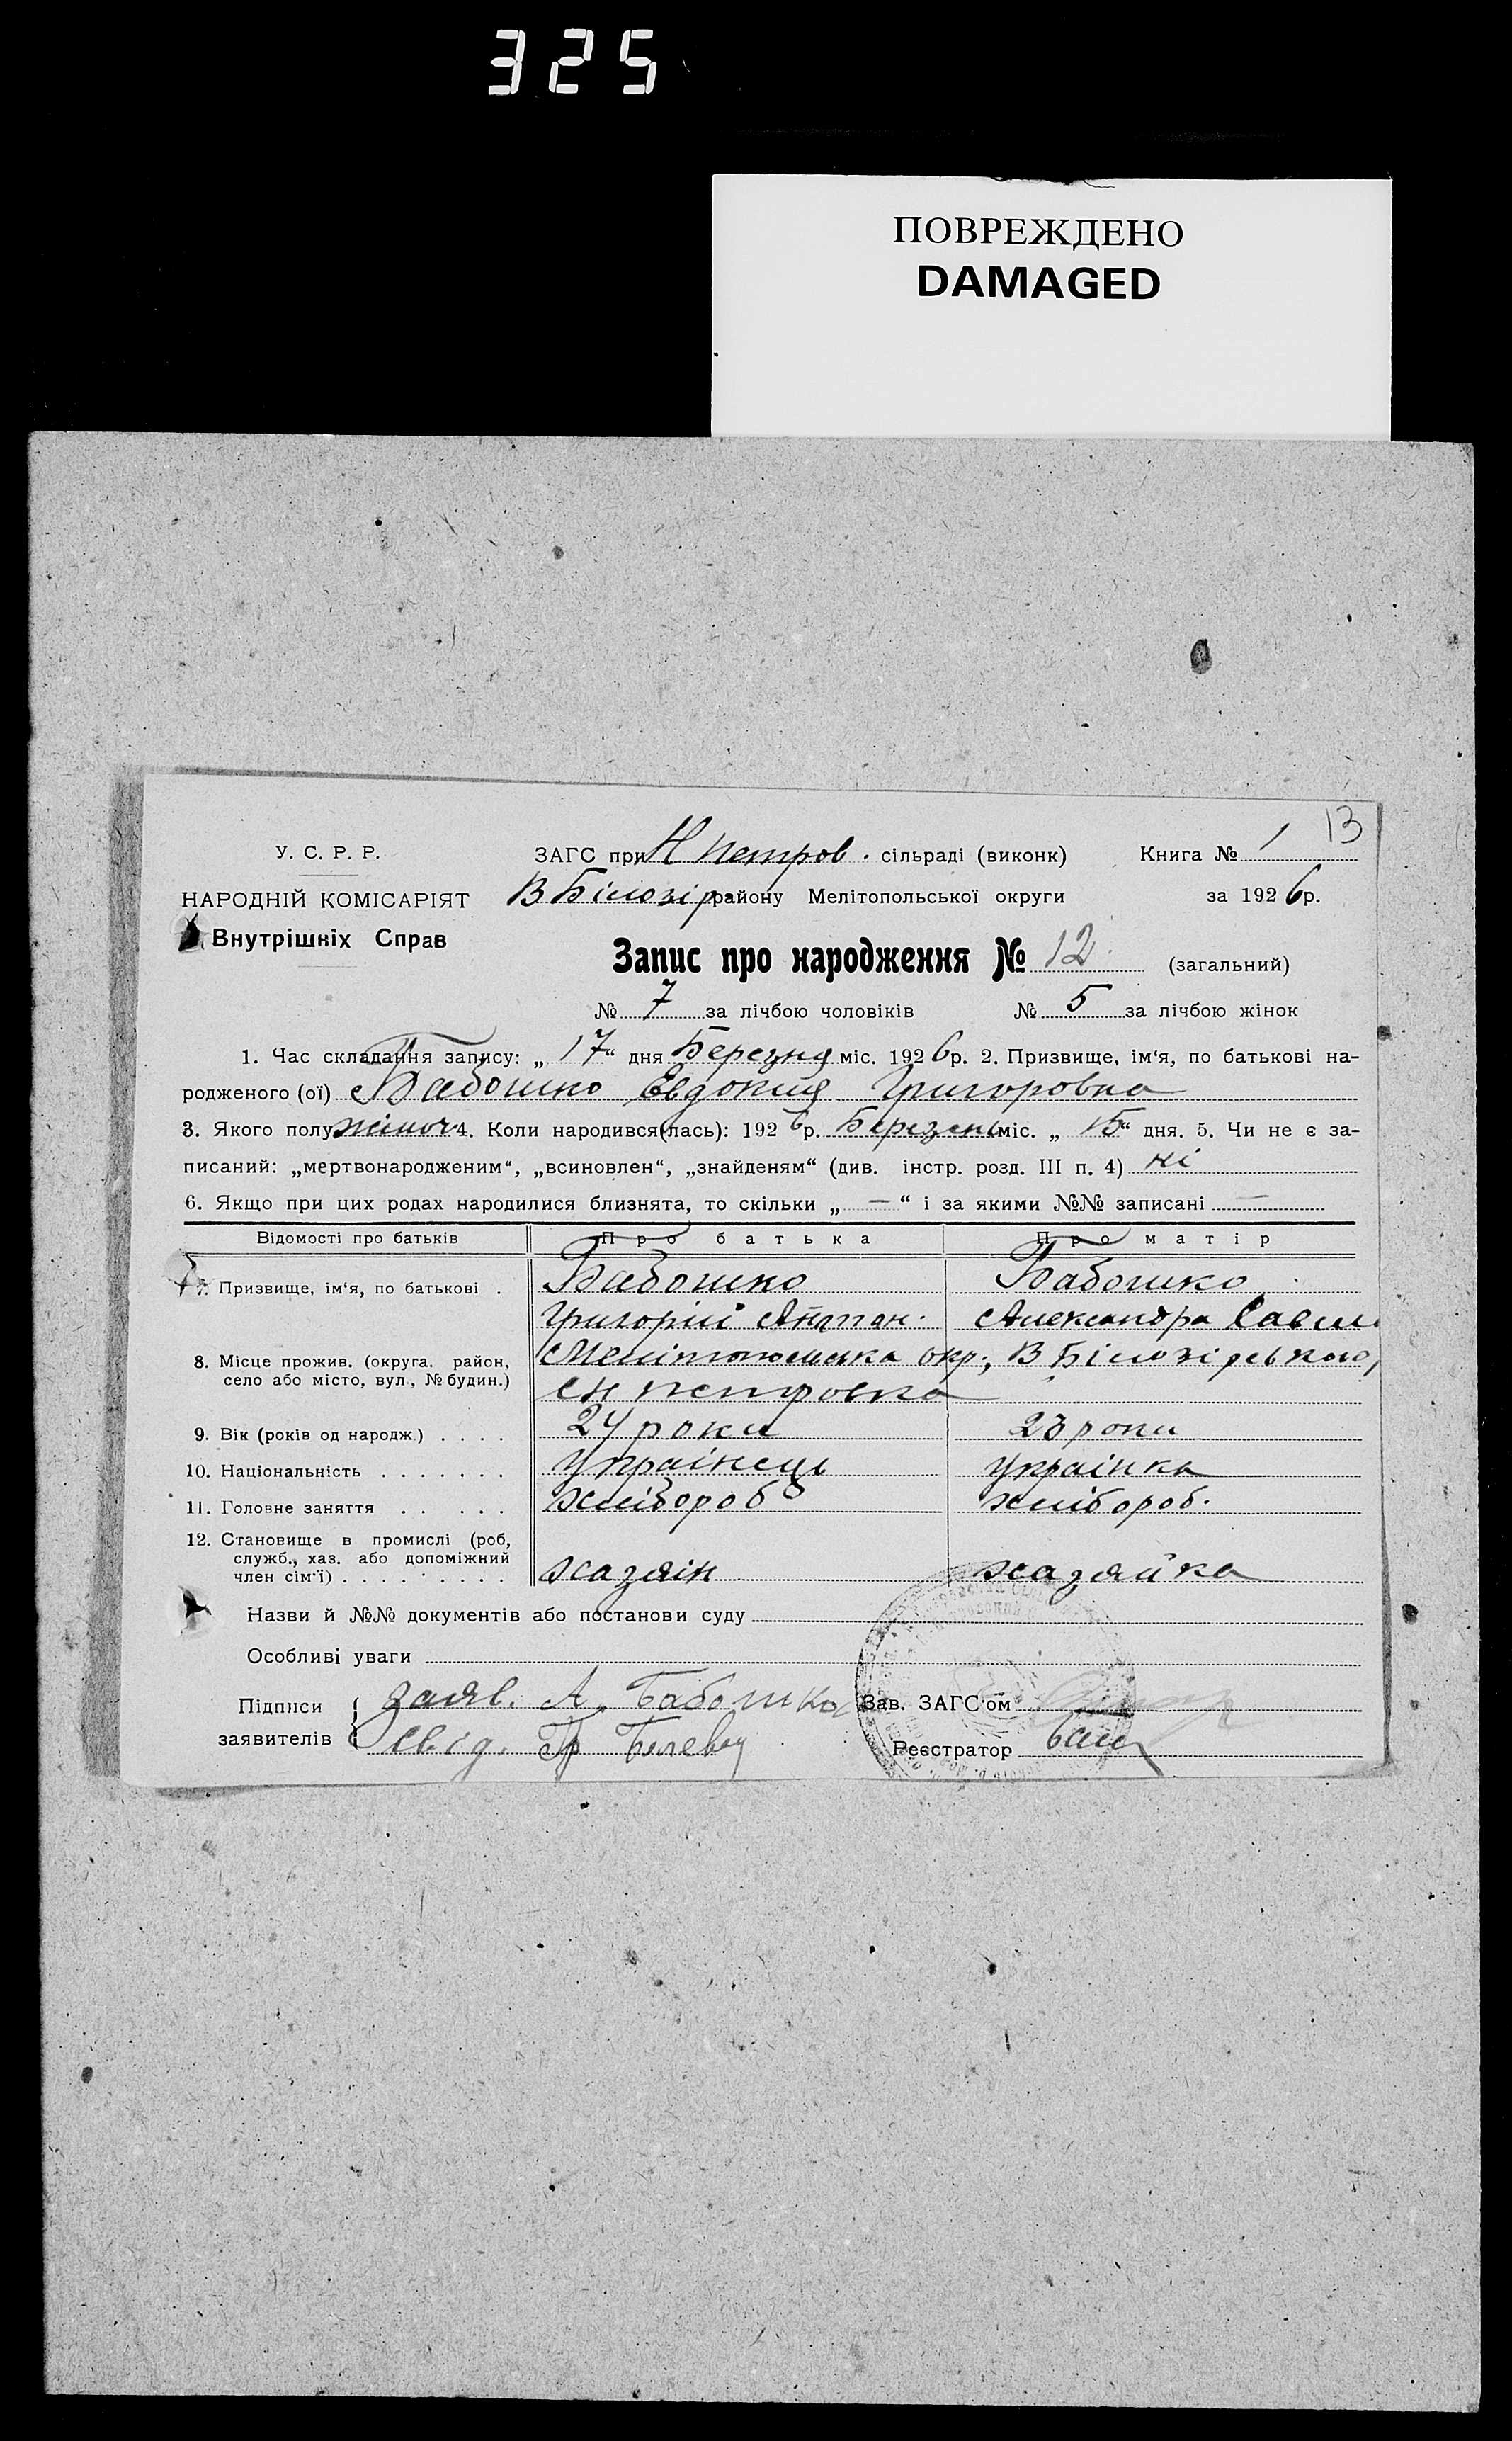 325
ПОВРЕЖДЕНО
DAMAGED
13
У. С. Р. Р.
ЗАГС при Н Петров. сільраді (виконк) Книга № 1
НАРОДНІЙ КОМІСАРІЯТ
В Білозір району Мелітопольської округи за 1926 р.
Внутрішніх Справ
Запис про народження № 12 (загальний)
№ 7 за лічбою чоловіків № 5 за лічбою жінок
1. Час складання запису: „17“ дня Березня міс. 1926 р. 2. Призвище, ім‘я, по батькові на-
родженого (ої) Бабошко Евдокия Григоровна
3. Якого полу жіноч 4. Коли народився(лась): 1926 р. Березень міс. „15“ дня. 5. Чи не є за-
писаний: „мертвонародженим“, „всиновлен“, „знайденям“ (див. інстр. розд. III п. 4) ні
6. Якщо при цих родах народилися близнята, то скільки „ — “ і за якими №№ записані —
Відомості про батьків Про батька Про матір
7. Призвище, ім‘я, по батькові . Бабошко Бабошко
Григорій Александра
8. Місце прожив. (округа, район, Мелітопольська окр., В Білозірського,
село або місто, вул., № будин.) с Н Петровка
9. Вік (років од народж.) . . . . 24 роки 23 роки
10. Національність . . . . . . . Українець Українка
11. Головне заняття . . . . . хлібороб хлібороб.
12. Становище в промислі (роб,
служб., хаз. або допоміжний
член сім‘ї) . . . . . . . . . хазяін хазяйка
Назви й №№ документів або постанови суду
Особливі уваги
Підписи заяв. А. Бабошко Зав. ЗАГС‘ом
заявителів свід. Реєстратор